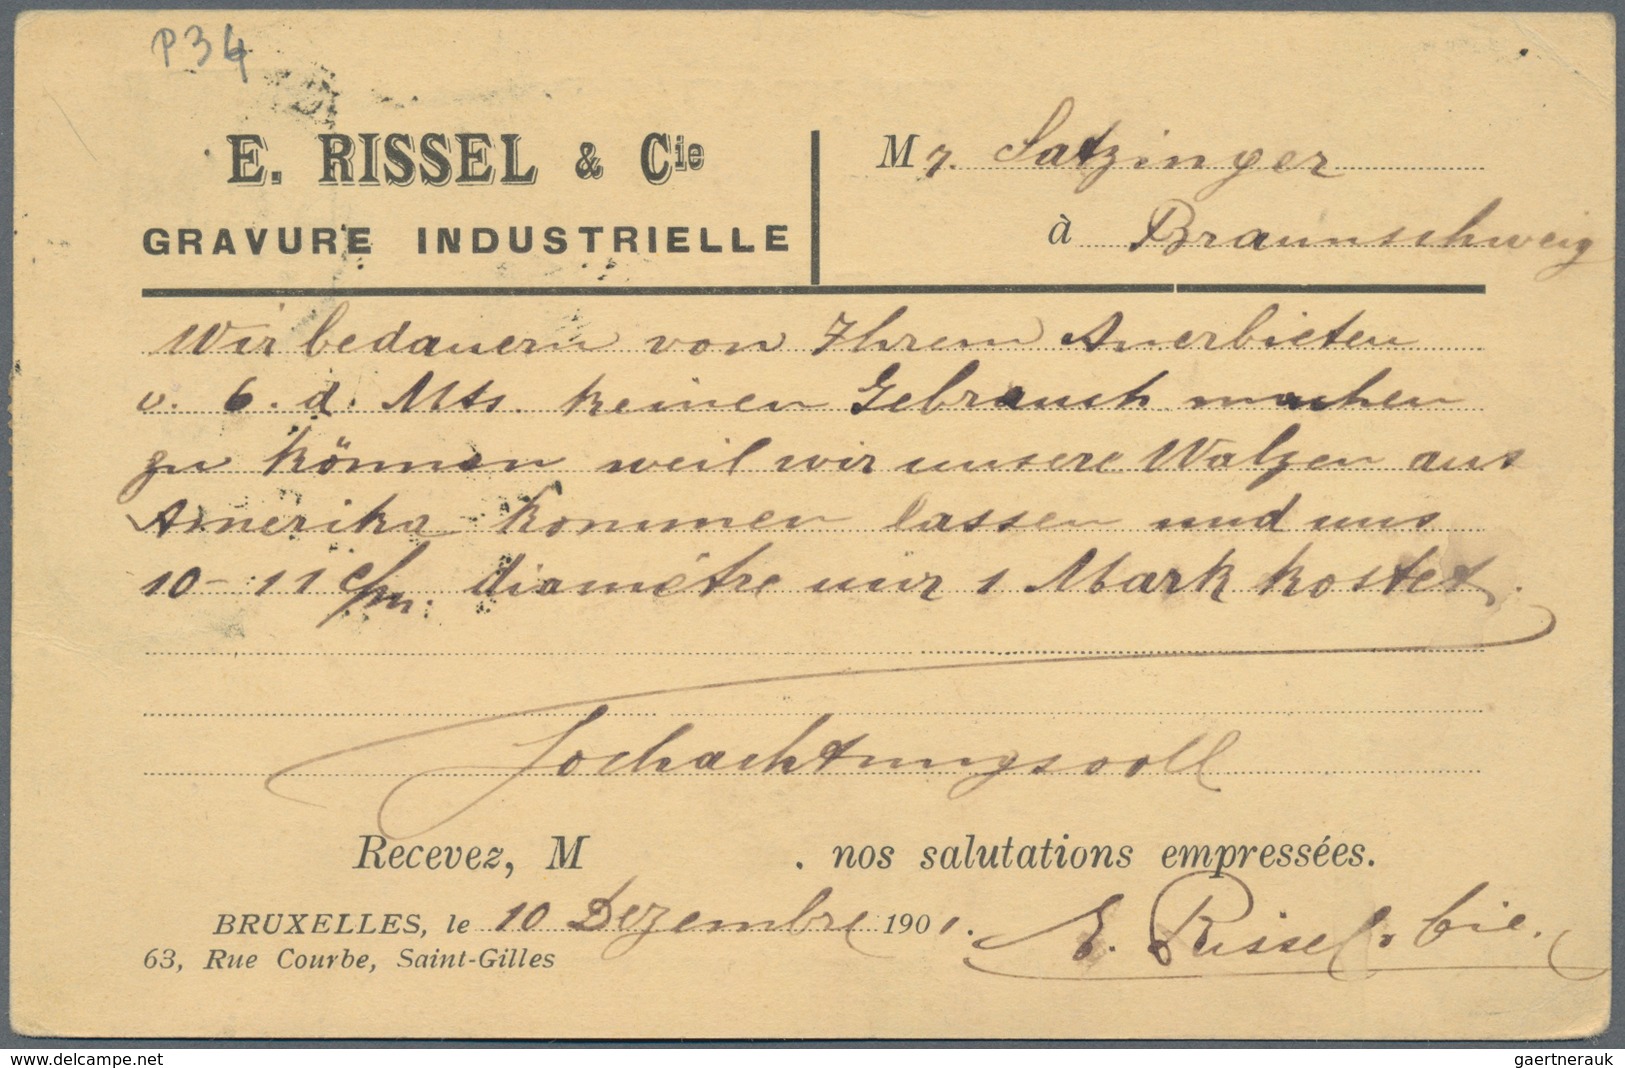 P34
E. RISSEL & Cie
GRAVURE INDUSTRIELLE
Mr. Satzinger
à Braunschweig
Wir bedauern von Ihrem Anerbieten
v. 6. d. Mts. keinen Gebrauch machen
zu können weil wir unsere Walzen aus
Amerika kommen lassen und uns
10-11 c/m. diamètre nur 1 Mark kostet.
Hochachtungsvoll
Recevez, M . nos salutations empressées.
BRUXELLES, le 10 Dezembre 1901.
E. Rissel & Cie.
63, Rue Courbe, Saint-Gilles
www.delcampe.net
gaertnerauk